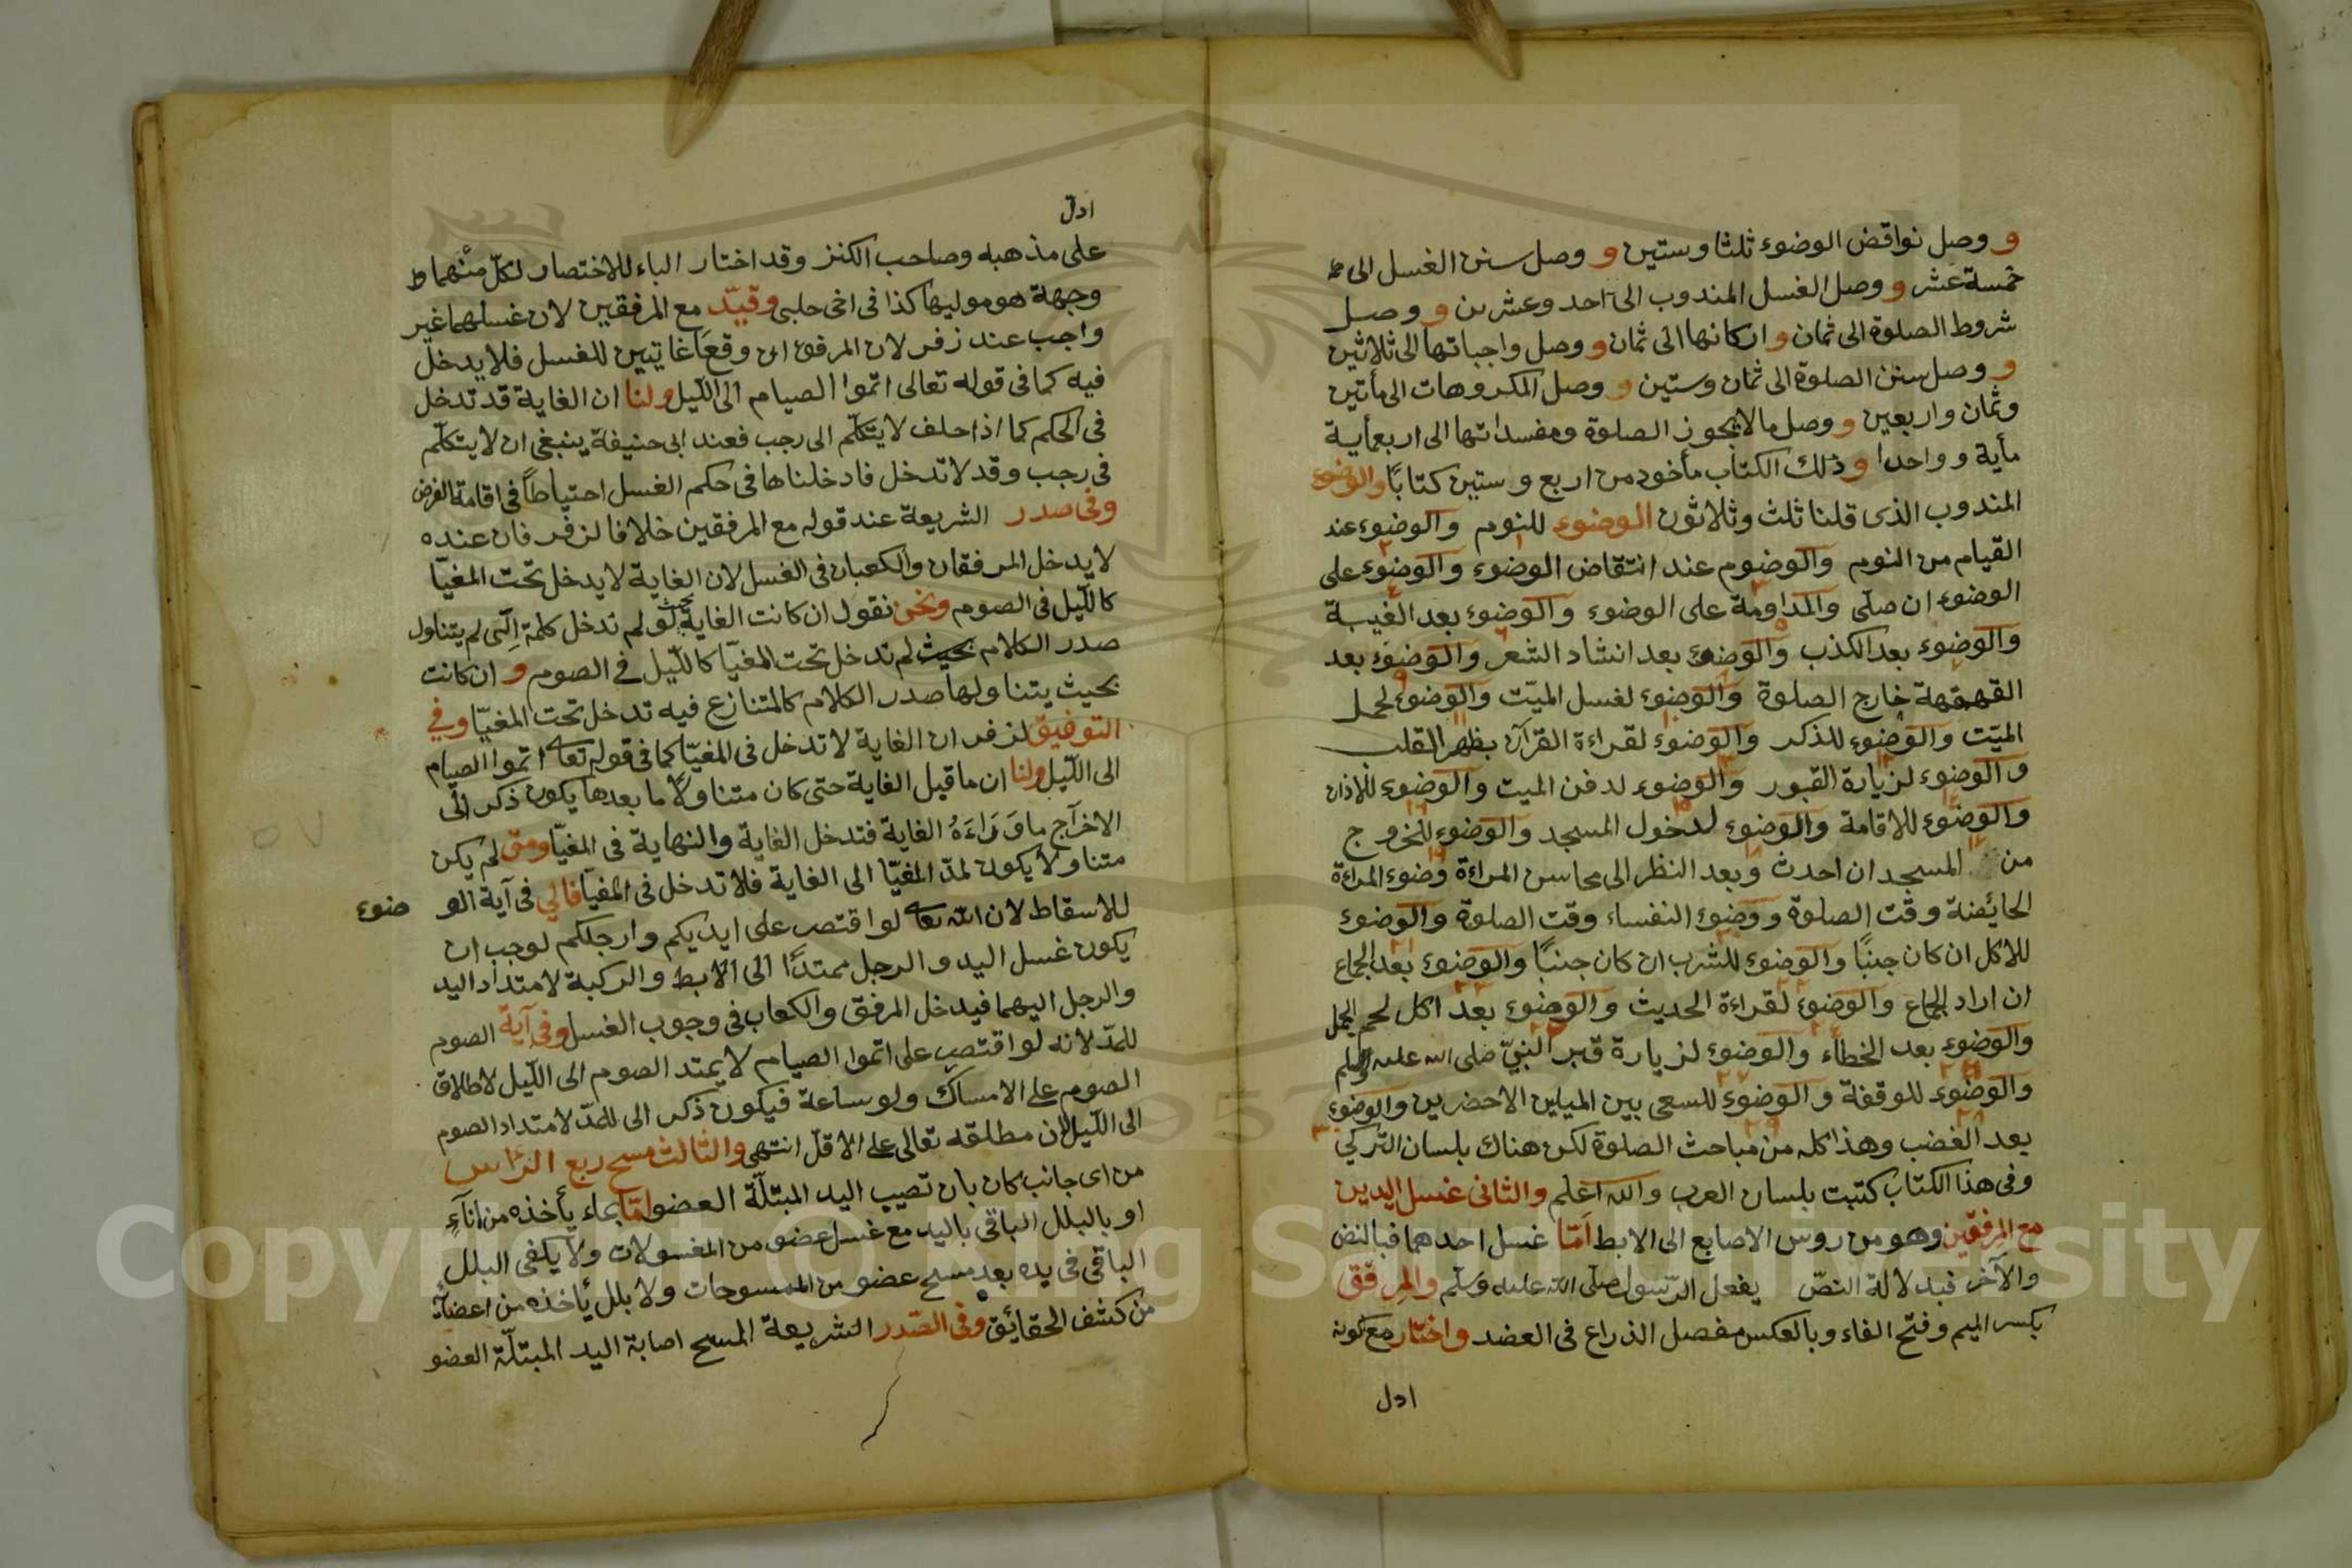 و وصل نواقض الوضوء ثلثا وستين و وصل سنن الغسل الى
خمسة عشر و وصل الغسل المندوب الى احد وعشرين و وصل
شروط الصلوة الى ثمان و اركانها الى ثمان و وصل واجباتها الى ثلاثين
و وصل سنن الصلوة الى ثمان وستين و وصل المكروهات الى مأتين
وثمان واربعين و وصل ما لا يجوز الصلوة ومفسداتها الى اربعمأية
مأية و واحدا و ذلك الكتاب مأخوذ من اربع وستين كتابًا والوضوء
المندوب الذى قلنا ثلث وثلاثون الوضوء للنوم والوضوء عند
القيام من النوم والوضوم عند انتقاض الوضوء والوضوء على
الوضوء ان صلّى والمداومة على الوضوء والوضوء بعد الغيبة
والوضوء بعد الكذب والوضوء بعد انشاد الشعر والوضوء بعد
القهقهة خارج الصلوة والوضوء لغسل الميّت والوضوء لحمل
الميّت والوضوء للذكر والوضوء لقراءة القرآن بظهر القلب
والوضوء لزيارة القبور والوضوء لدفن الميت والوضوء للاذان
والوضوء للاقامة والوضوء لدخول المسجد والوضوء للخروج
من المسجد ان احدث وبعد النظر الى محاسن المراءة وضوء المراءة
الحائضة وقت الصلوة ووضوء النفساء وقت الصلوة والوضوء
للاكل ان كان جنبًا والوضوء للشرب ان كان جنبًا والوضوء بعد الجماع
ان اراد الجماع والوضوء لقراءة الحديث والوضوء بعد اكل لحم الجمل
والوضوء بعد الخطاء والوضوء لزيارة قبر النبيّ صلى الله عليه وسلم
والوضوء للوقفة والوضوء للسعى بين الميلين الاخضرين والوضوء
بعد الغضب وهذا كله من مباحث الصلوة لكن هناك بلسان التركي
وفى هذا الكتاب كتبت بلسان العرب والله اعلم والثانى غسل اليدين
مع المرفقين وهو من روس الاصابع الى الابط امّا غسل احدهما فبالنص
والآخر فبدلالة النصّ يفعل الرّسول صلّى الله عليه وسلّم والمرفق
بكسر الميم وفتح الفاء وبالعكس مفصل الذراع فى العضد واختار مع كونه
ادل
ادلّ
على مذهبه وصاحب الكنز وقد اختار الباء للاختصار لكلّ منهما
وجهة هو موليها كذا فى اخى حلبى وقيّد مع المرفقين لان غسلهما غير
واجب عند زفر لان المرفق اى وقعا غايتين للغسل فلا يدخل
فيه كما فى قوله تعالى اتموا الصيام الى الليل ولنا ان الغاية قد تدخل
فى الحكم كما اذا حلف لا يتكلّم الى رجب فعند ابى حنيفة ينبغى ان لا يتكلّم
فى رجب وقد لا تدخل فادخلناها فى حكم الغسل احتياطاً فى اقامة الفرض
وفى صدر الشريعة عند قوله مع المرفقين خلافا لزفر فان عنده
لا يدخل المرفقان والكعبان فى الغسل لان الغاية لا يدخل تحت المغيّا
كالليل فى الصوم ونحن نقول ان كانت الغاية بحيث لو لم تدخل كلمة الى لم يتناول
صدر الكلام بحيث لم تدخل تحت المغيّا كالليل فى الصوم و ان كانت
بحيث يتناولها صدر الكلام كالمتنازع فيه تدخل تحت المغيّا وفي
التوفيق لزفر ان الغاية لا تدخل فى المغيّا كما فى قوله تعالى اتموا الصيام
الى الليل ولنا ان ما قبل الغاية حتى كان متناولًا ما بعدها يكون ذكر الى
الاخراج ما وراءه الغاية فتدخل الغاية والنهاية فى المغيّا ومتى لم يكن
متناولا يكون لمدّ المغيّا الى الغاية فلا تدخل فى المغيّا فالي فى آية الوضوء
للاسقاط لان الله تعالى لو اقتصر على ايديكم وارجلكم لوجب ان
يكون غسل اليد والرجل ممتدًّا الى الابط والركبة لامتداد اليد
والرجل اليهما فيدخل المرفق والكعاب فى وجوب الغسل وفى آية الصوم
للمدّ لانه لو اقتصر على اتموا الصيام لا يمتد الصوم الى الليل لاطلاق
الصوم على الامساك ولو ساعة فيكون ذكر الى للمدّ لامتداد الصوم
الى الليل لان مطلقه تعالى على الاقلّ انتهى والثالث مسح ربع الرّاس
من اى جانب كان بان تصيب اليد المبتلّة العضو امّا بماء يأخذه من اناءٍ
او بالبلل الباقى باليد مع غسل عضو من المغسولات ولا يكفى البلل
الباقى فى يده بعد مسلح عضو من الممسوحات ولا بلل يأخذه من اعضائه
من كشف الحقائق وفى الصّدر الشريعة المسح اصابة اليد المبتلّة العضو
Copyright © King Saud University
1957